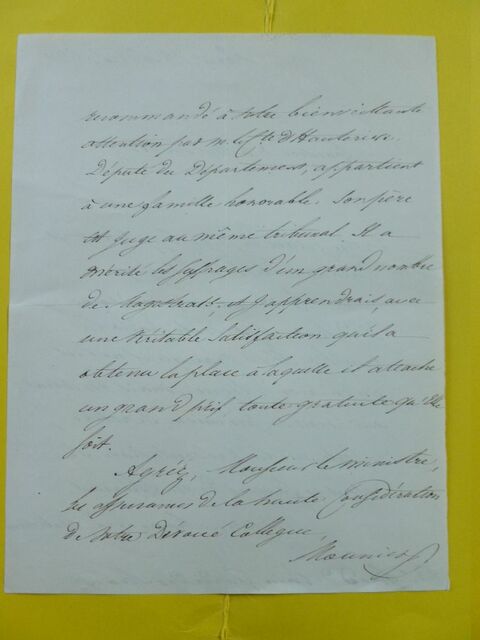 recommandé à votre bienveillante
attention par M. le Cte d'Hauterive,
Député du Département, appartient
à une famille honorable. Son père
est Juge au même tribunal. Il a
mérité les suffrages d'un grand nombre
de Magistrats, et J'apprendrais, avec
une véritable Satisfaction qu'il a
obtenu la place à laquelle il attache
un grand prix, toute gratuite qu'elle
soit.
Agréez, Monsieur le ministre,
les assurances de la haute Considération
de votre Dévoué Collègue,
Mounier